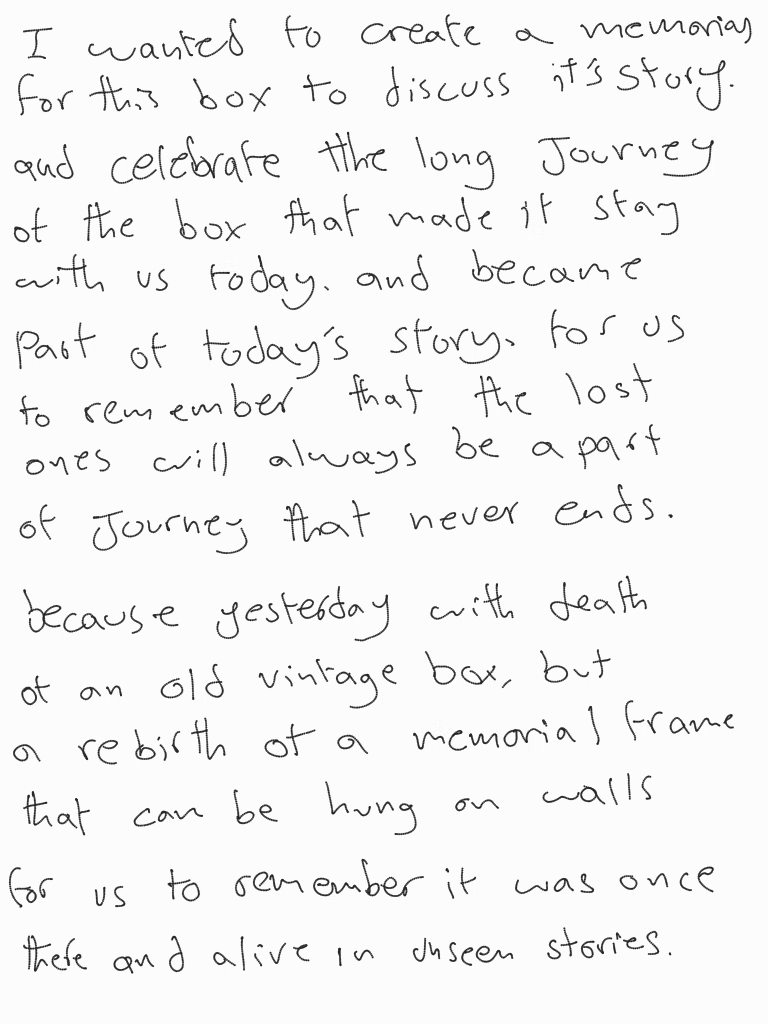 I wanted to create a memorial
for this box to discuss it's story.
and celebrate the long Journey
of the box that made it stay
with us today. and became
Part of today's story. for us
to remember that the lost
ones will always be a part
of Journey that never ends.
because yesterday with death
of an old vintage box, but
a rebirth of a memorial frame
that can be hung on walls
for us to remember it was once
there and alive in unseen stories.